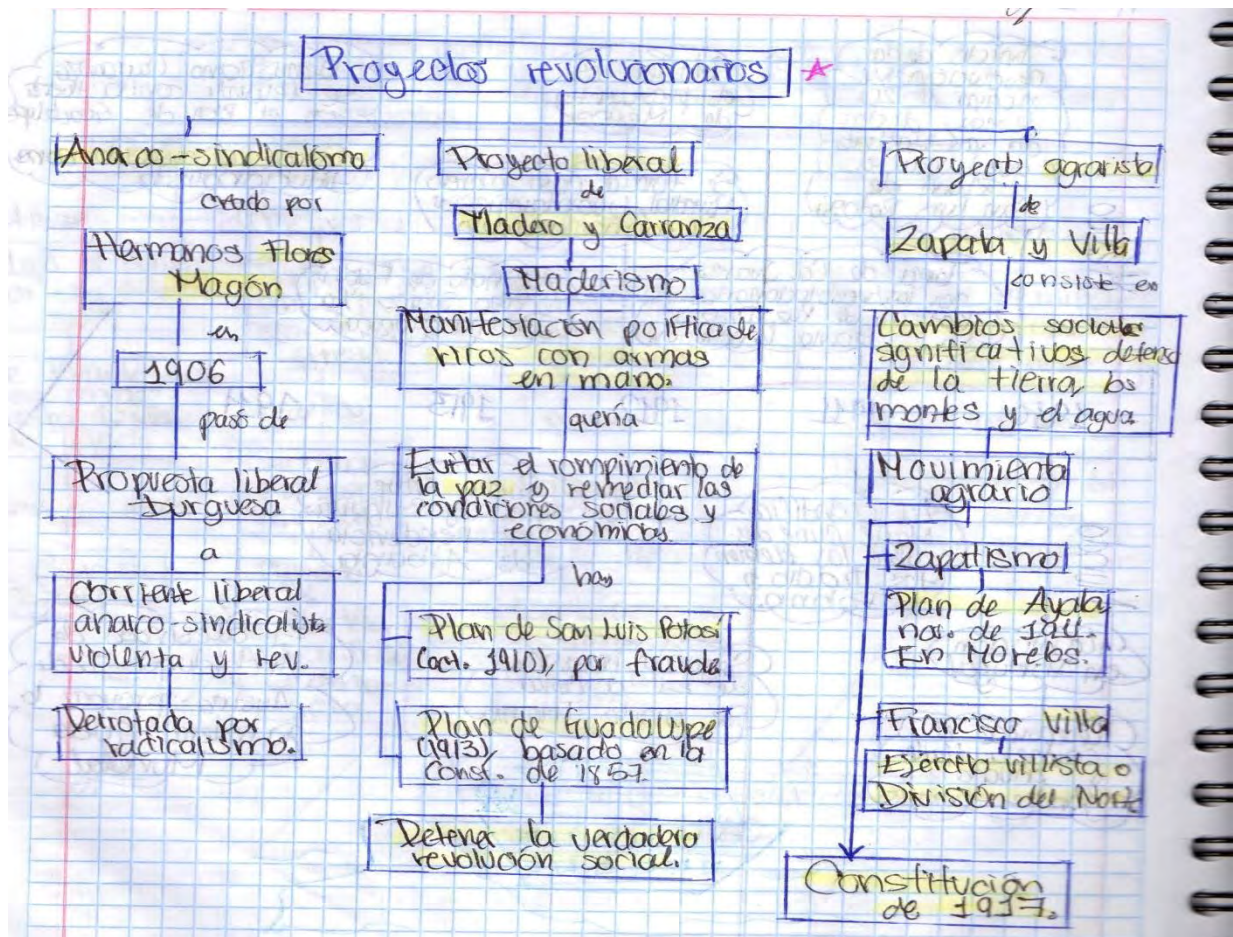 Proyectos revolucionarios
Anarco-sindicalismo
creado por
Hermanos Flores
Magón
en
1906
pasó de
Propuesta liberal
burguesa
a
Corriente liberal
anarco-sindicalista
violenta y rev.
Derrotada por
radicalismo.
Proyecto liberal
de
Madero y Carranza
Maderismo
Manifestación política de
ricos con armas
en mano.
quería
Evitar el rompimiento de
la paz y remediar las
condiciones sociales y
económicas.
hay
Plan de San Luis Potosí
(oct. 1910), por fraude
Plan de Guadalupe
(1913), basado en la
Const. de 1857.
Detener la verdadera
revolución social.
Proyecto agrarista
de
Zapata y Villa
consiste en
Cambios sociales
significativos defensa
de la tierra, los
montes y el agua.
Movimiento
agrario
Zapatismo
Plan de Ayala
nov. de 1911.
En Morelos.
Francisco Villa
Ejército villista o
División del Norte
Constitución
de 1917.